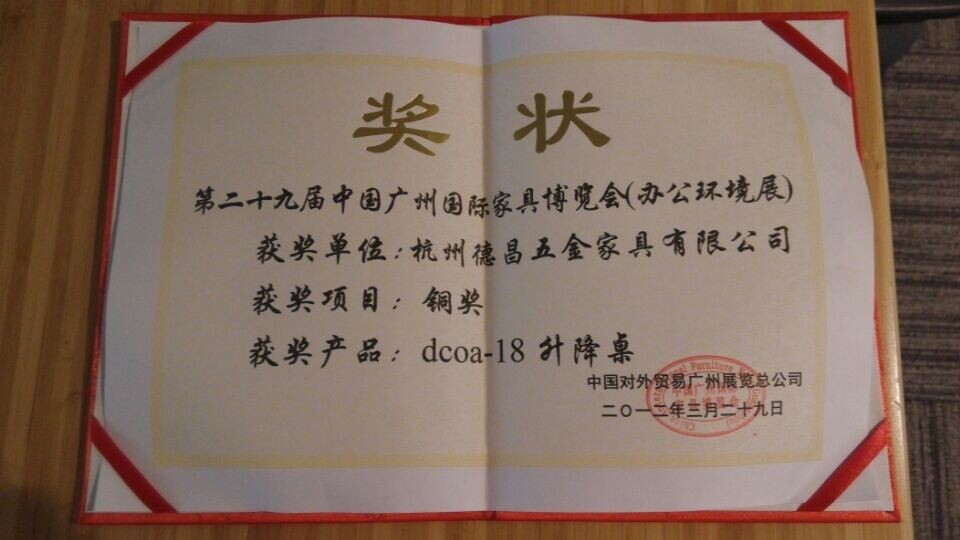 奖状
第二十九届中国广州国际家具博览会(办公环境展)
获奖单位:杭州德昌五金家具有限公司
获奖项目:铜奖
获奖产品:dcoa-18升降桌
中国对外贸易广州展览总公司
二〇一二年三月二十九日